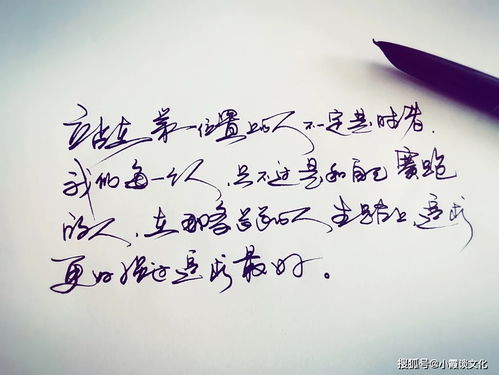 站在第一位置上的人不一定是胜者.
我们每一个人,只不过是和自己赛跑
的人,在那条长长的人生路上,追求
更好强过追求最好。
搜狐号@小霞谈文化